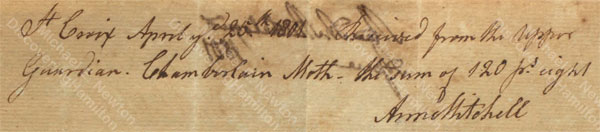 St Croix April ye 25th 1801. Received from the Upper
Guardian. Chamberlain Moth - the sum of 120 ps. eight
Ann Mitchell